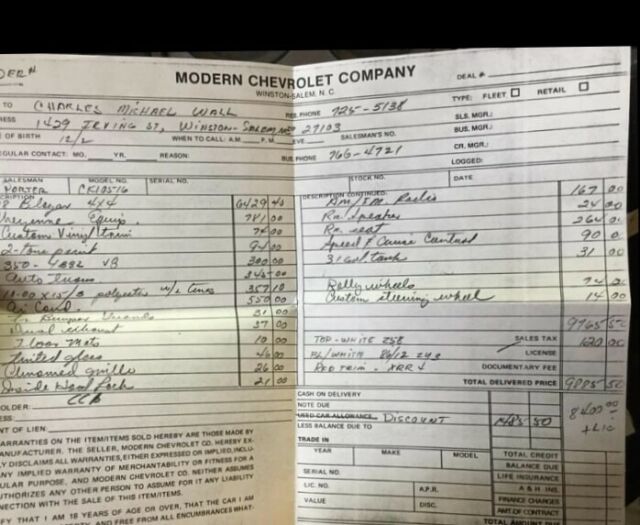 DER #
MODERN CHEVROLET COMPANY
WINSTON-SALEM, N. C.
DEAL #
TYPE: FLEET RETAIL
TO CHARLES MICHAEL WALL RES. PHONE 725-5138
SLS. MGR.:
RESS 1429 IRVING ST, WINSTON-SALEM 27103
BUS. MGR.:
OF BIRTH 12/2 WHEN TO CALL: A.M. P.M. EVE. SALESMAN'S NO.
CR. MGR.:
GULAR CONTACT: MO. YR. REASON: BUS PHONE 766-4721
LOGGED:
SALESMAN MODEL NO. SERIAL NO.
PORTER CK10516
STOCK NO. DATE
CRIPTION
Blazer 4X4 6429 45
Cheyenne Equip. 781 00
Custom Vinyl trim 74 00
2-tone paint
350-4BBL V8 300 00
Auto trans
10:00 X 15/B polyester w/l tires 357 10
Air Cond. 550 00
Bumper Guards 31 00
Dual exhaust 37 00
Floor Mats 10 00
Tinted glass 46 00
Chromed grille 26 00
Inside Hood Lock 21 00
DESCRIPTION CONTINUED:
Am/Fm Radio 167 00
Rr. Speaker 24 00
Rr. seat 264 00
Speed & Cruise Control 90 0
31 Gal tank 31 00
Rally wheels
Custom steering wheel 14 00
9765 50
TOP-WHITE 258
SALES TAX 120 00
LICENSE
RED TRIM.
DOCUMENTARY FEE
TOTAL DELIVERED PRICE 9885 50
OLDER: CCB
ESS:
NT OF LIEN:
CASH ON DELIVERY
NOTE DUE
USED CAR ALLOWANCE DISCOUNT 1485 50
LESS BALANCE DUE TO
8400.00
+ LIC
TRADE IN
YEAR MAKE MODEL
TOTAL CREDIT
BALANCE DUE
SERIAL NO.
LIFE INSURANCE
LIC. NO. A.P.R.
A & H INS.
VALUE DISC.
FINANCE CHARGES
AMT. OF CONTRACT
TOTAL AMOUNT DUE
ARRANTIES ON THE ITEM/ITEMS SOLD HEREBY ARE THOSE MADE BY
MANUFACTURER. THE SELLER, MODERN CHEVROLET CO. HEREBY EX-
LY DISCLAIMS ALL WARRANTIES, EITHER EXPRESSED OR IMPLIED, INCLU-
NY IMPLIED WARRANTY OF MERCHANTABILITY OR FITNESS FOR A
ULAR PURPOSE, AND MODERN CHEVROLET CO. NEITHER ASSUMES
UTHORIZES ANY OTHER PERSON TO ASSUME FOR IT ANY LIABILITY
NECTION WITH THE SALE OF THIS ITEM/ITEMS.
FY THAT I AM 18 YEARS OF AGE OR OVER, THAT THE CAR I AM
AND FREE FROM ALL ENCUMBRANCES WHAT-